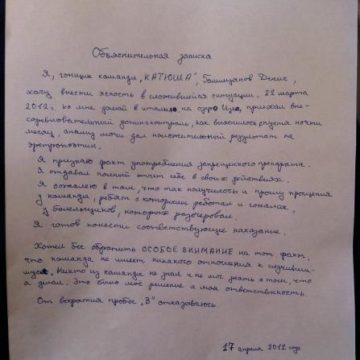 Объяснительная записка
Я, гонщик команды "КАТЮША" Галимзянов Денис,
хочу внести ясность в сложившейся ситуации. 22 марта
2012г. ко мне домой в италии на озро Изео, приехал вне-
соревновательный допинг контроль, как выяснилось спустя почти
месяц, анализ мочи дал положительный результат на
эритропоэтин.
Я признаю факт употребления запрещенного препарата.
Я отдавал полный отчет себе в своих действиях.
Я сожалею о том, что так получилось и прошу прощения
у команды, ребят с которыми работал и гонялся,
у болельщиков, которых разочаровал.
Я готов понести соответствующие наказание.
Хотел бы обратить ОСОБОЕ ВНИМАНИЕ на тот факт,
что команда не имеет никакого отношения к случивше-
муся. Никто из команды не знал и не мог знать о том, что
я делал. Это было мое решение и моя ответственность.
От вскрытия пробы "В" отказываюсь.
17 апреля 2012 год